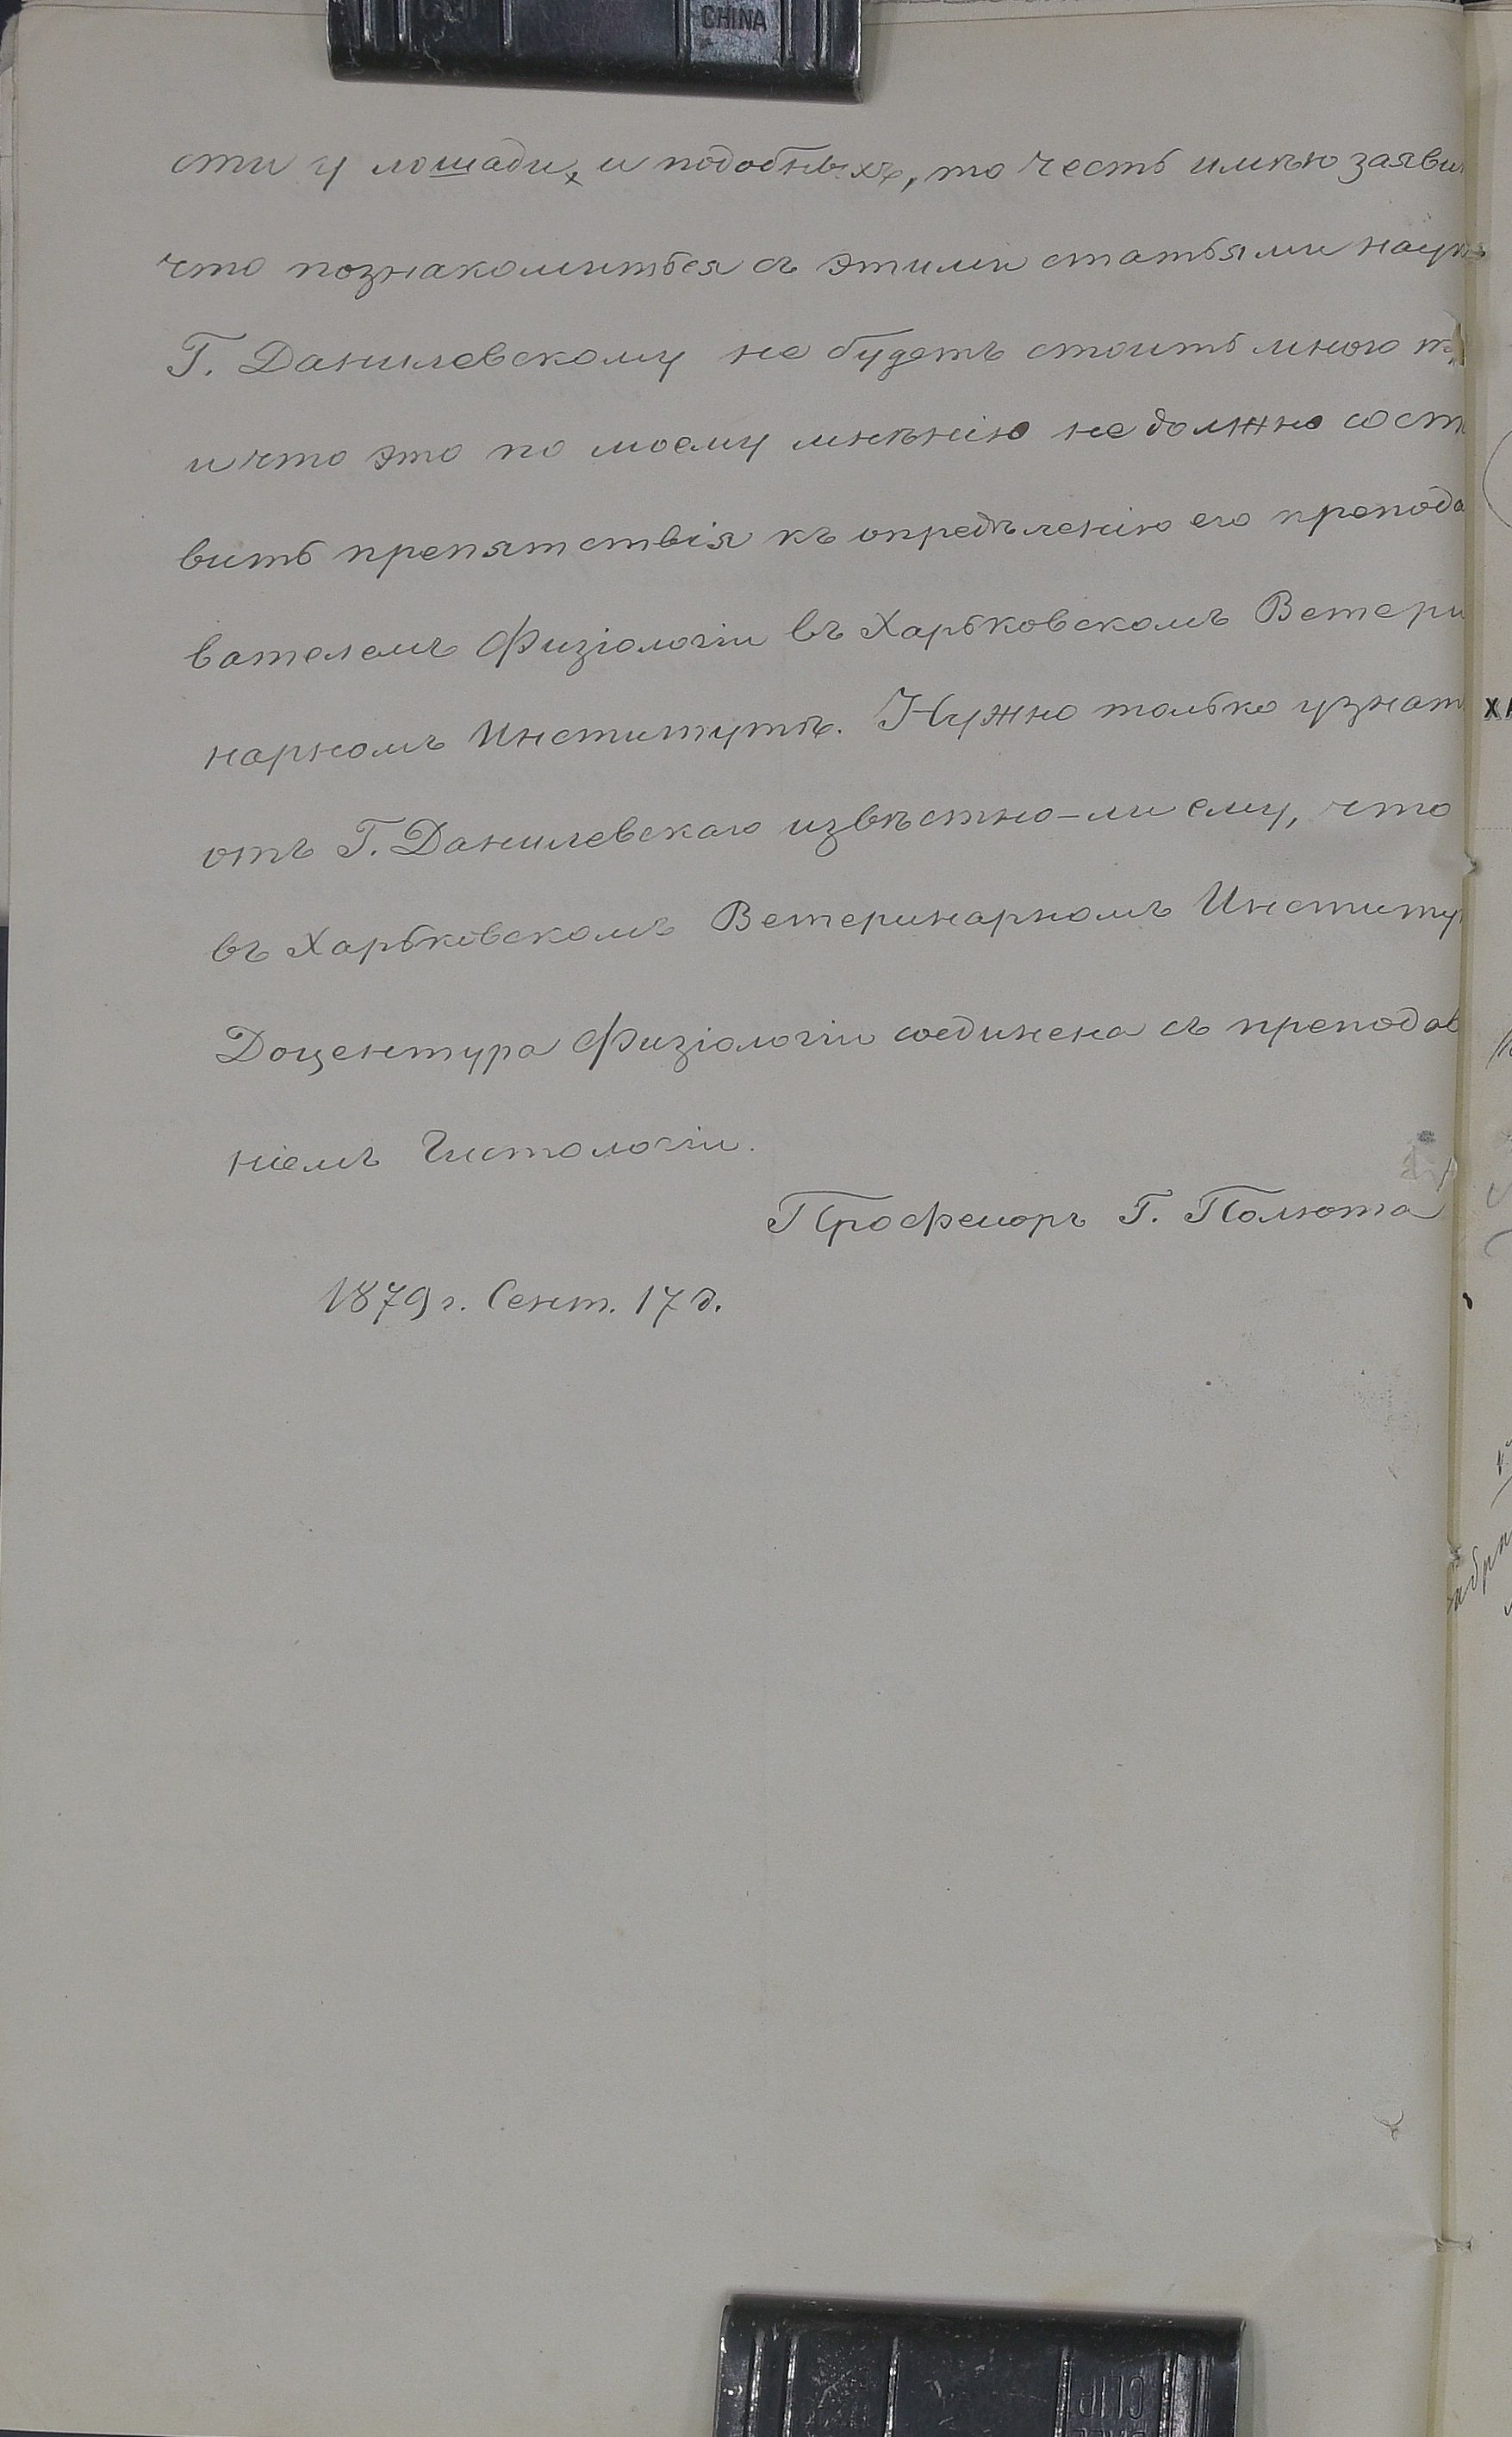 CHINA
сти у лошади, и подобныхъ, то честь имѣю заяви
что познакомиться съ этими статьями наукъ
Г. Данилевскому не будетъ стоить много
и что это по моему мнѣнію не должно соста
вить препятствія къ опредѣленію его препода
вателемъ Физіологіи въ Харьковскомъ Ветери
нарномъ Институтѣ. Нужно только узнат
отъ Г. Данилевскаго извѣстно-ли ему, что
въ Харьковскомъ Ветеринарномъ Институ
Доцентура Физіологіи соединена съ преподав
ніемъ Гистологіи.
Професоръ Г. Полюта
1879 г. Сент. 17 д.
CLIP